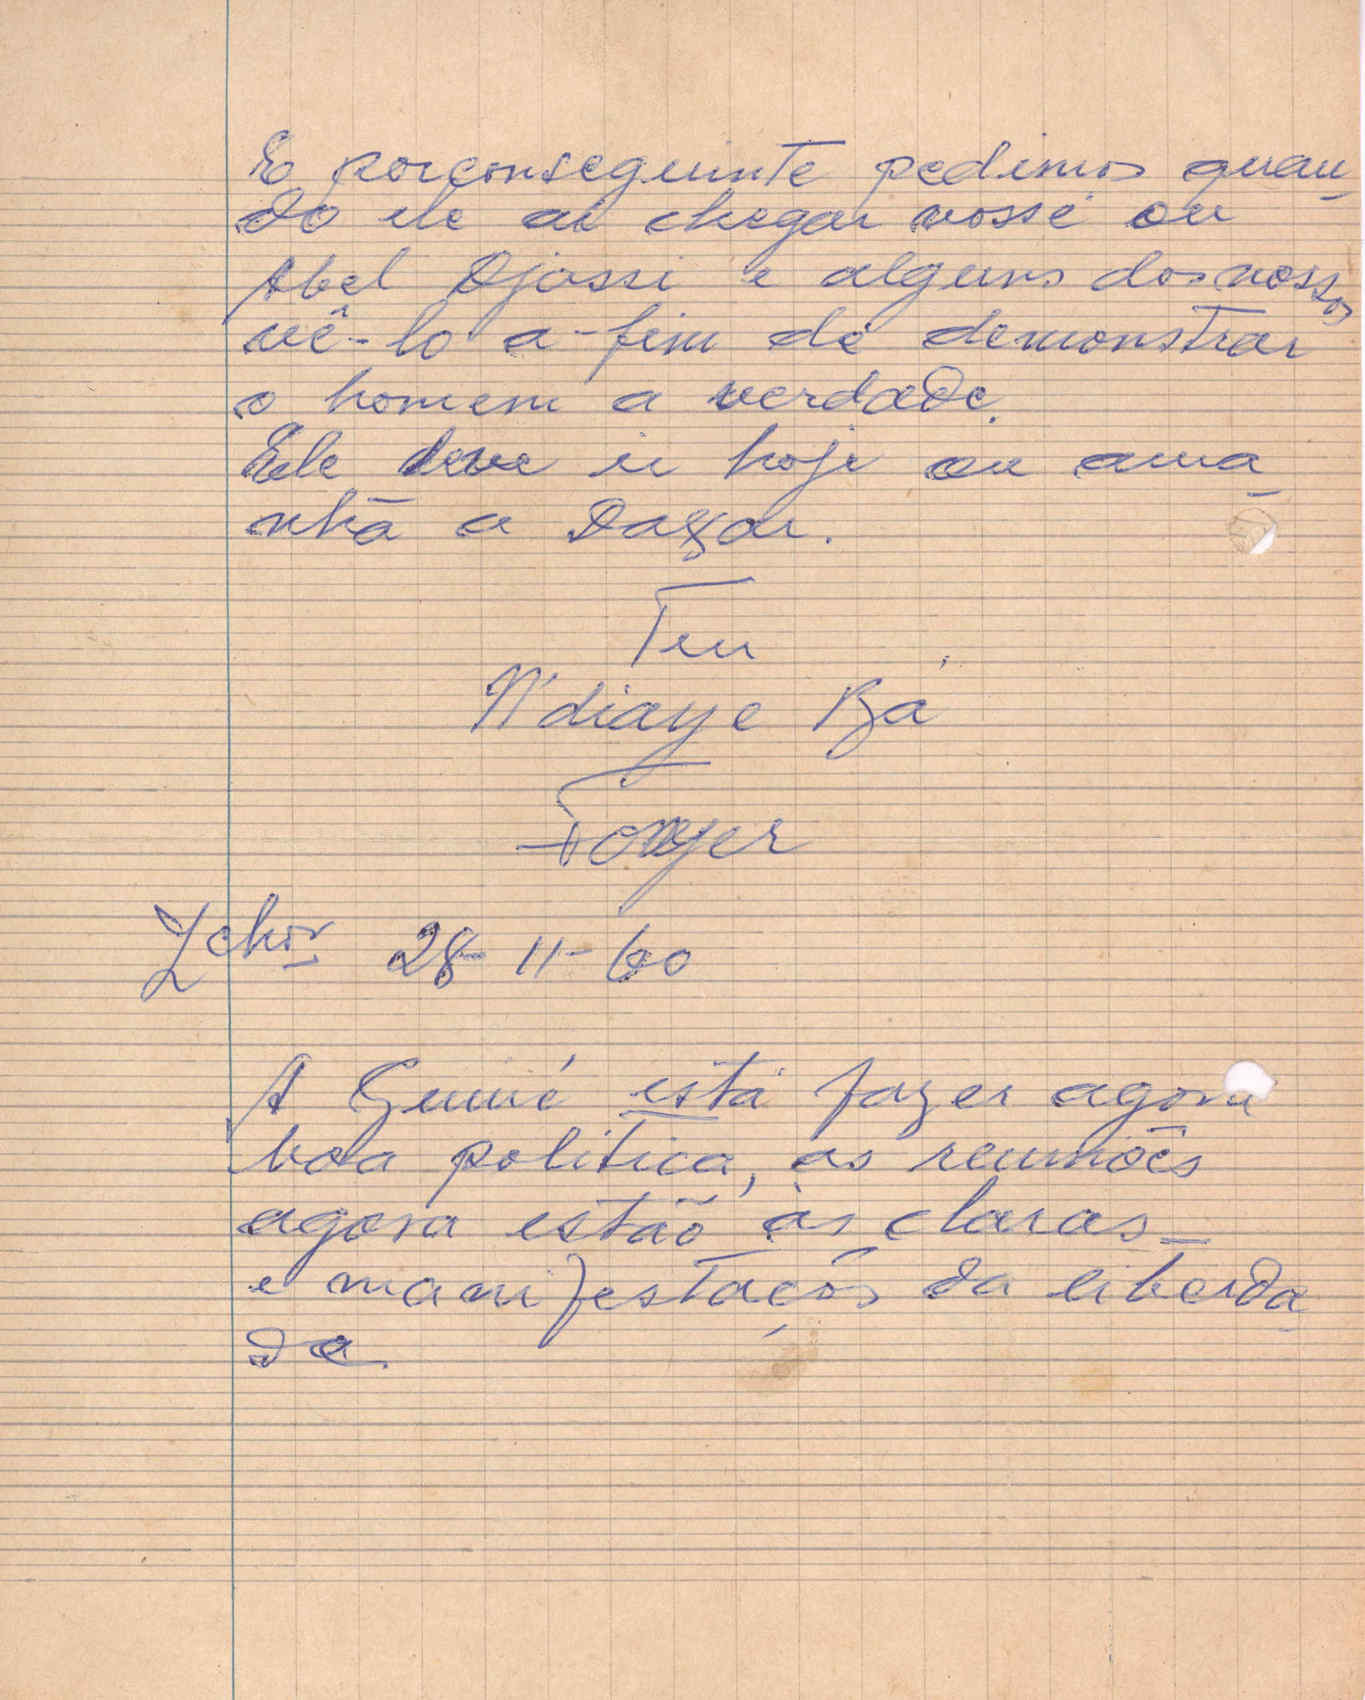 E porconseguinte pedimos quan_
do ele ai chegar vossé ou
Abel Djassi e alguns dos nossos
vê-lo a-fim de demonstrar
o homem a verdade.
Ele deve ir hoje ou ama_
nhã a Dakar.
Teu
N'diaye Bá
Zchor 28-11-60
A Guiné está fazer agora
boa politica, as reuniões
agora estão às claras_
e manifestações da liberda_
de.